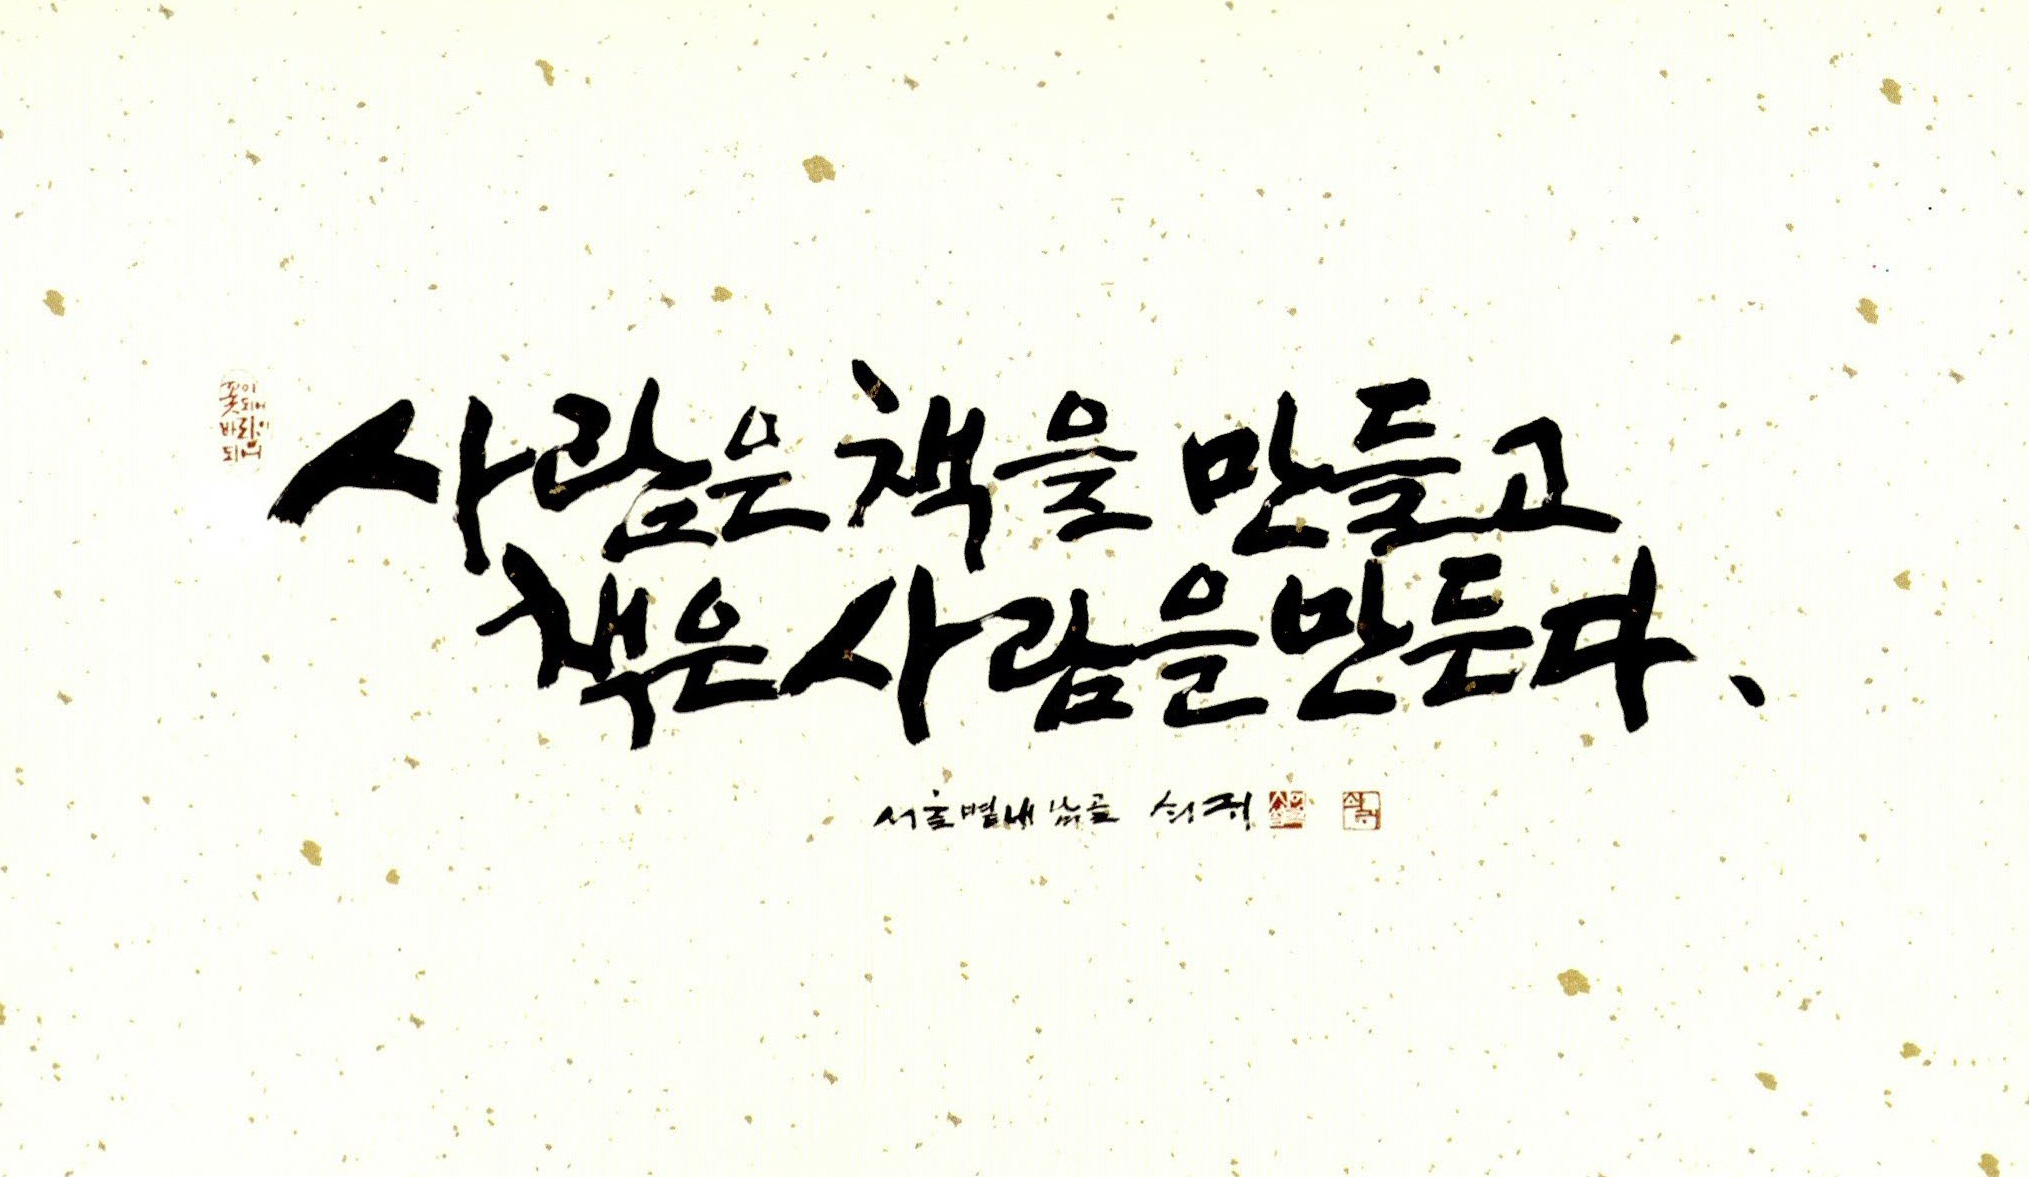 꽃이
되어
바람이
되어
사람은 책을 만들고
책은 사람을 만든다、
서울별내